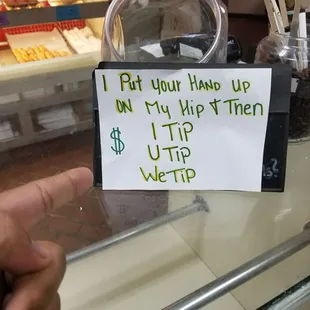 I Put your HAND UP
ON My Hip & Then
I TiP
$
U TiP
WeTiP